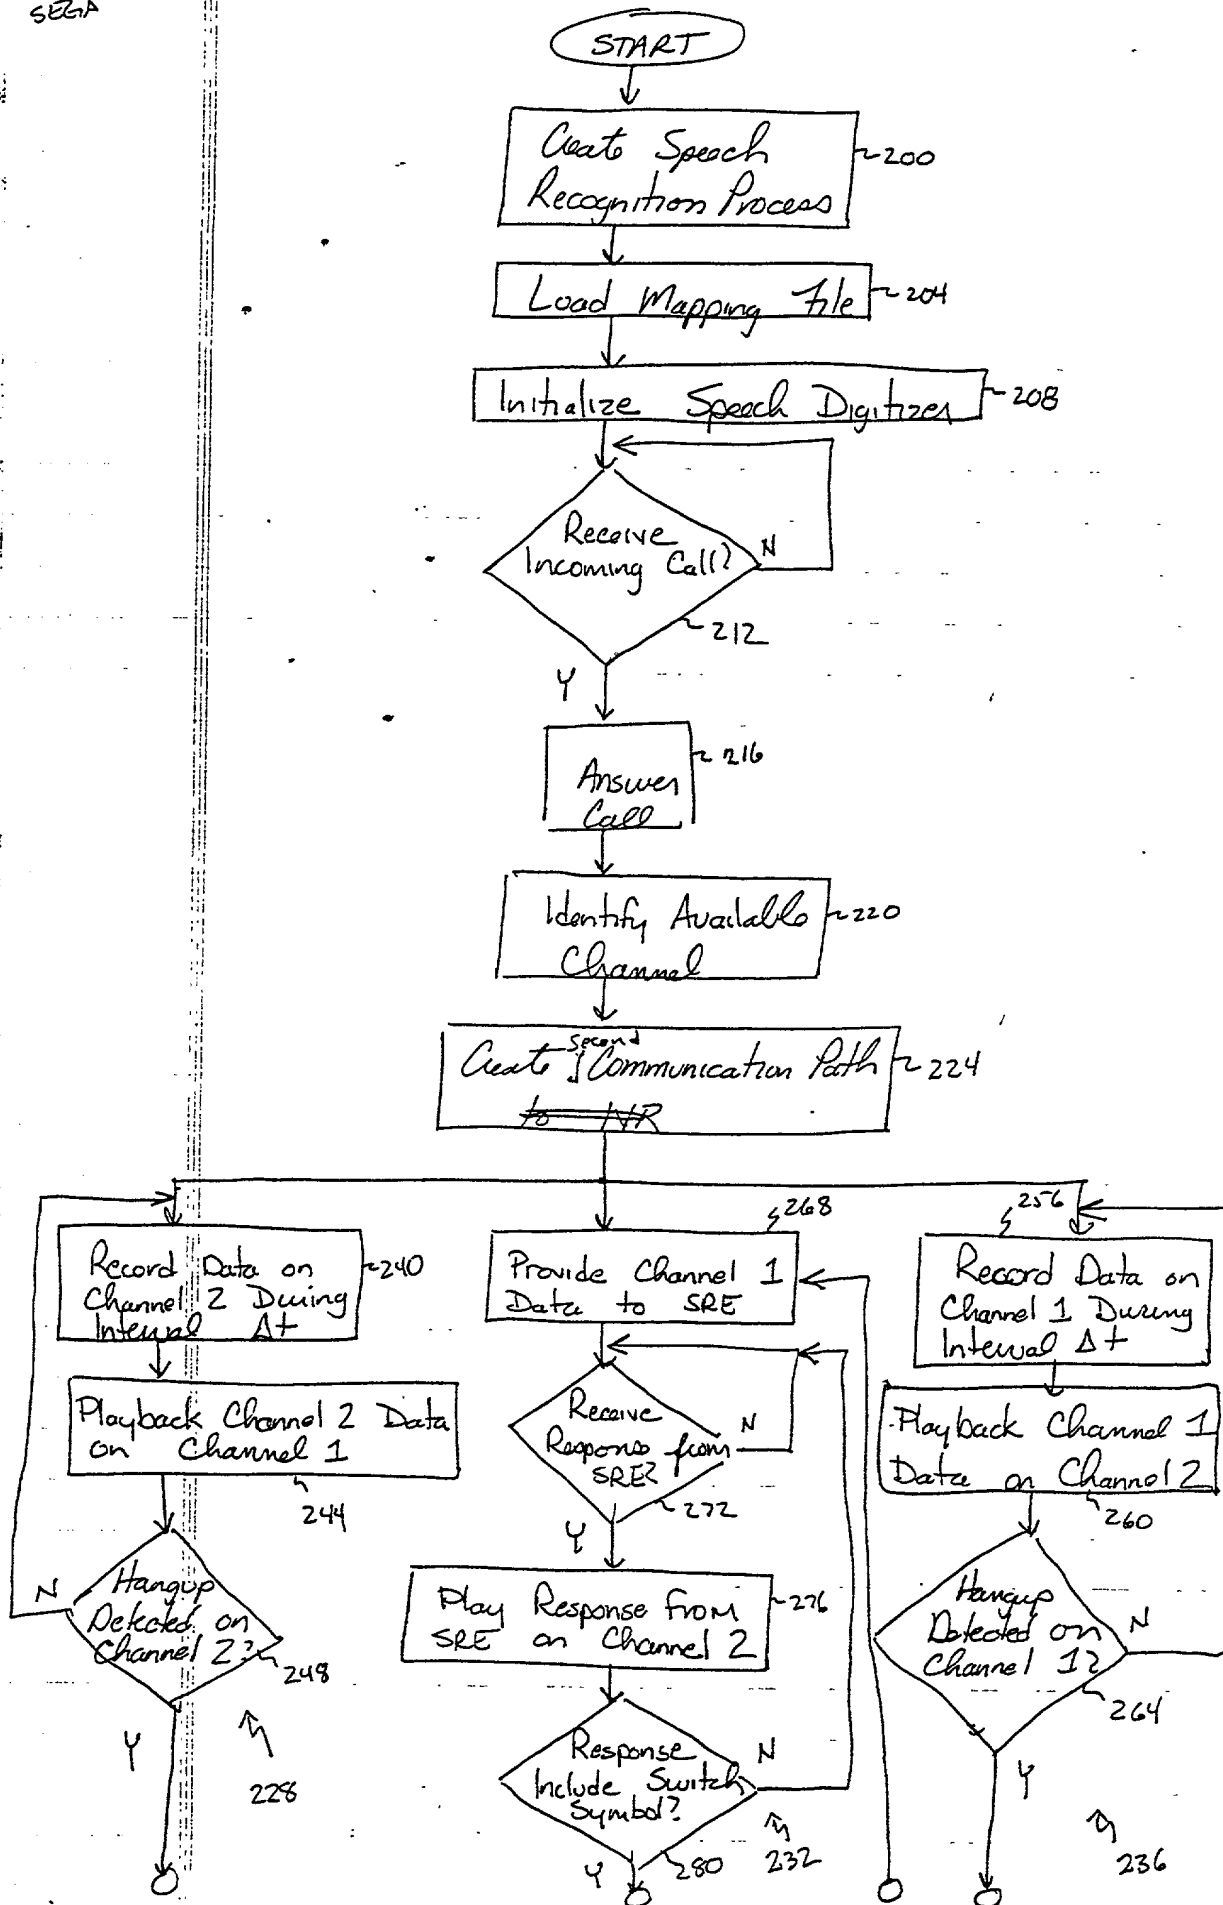 SEGA
START
Create Speech
Recognition Process
200
Load Mapping File
204
Initialize Speech Digitizer
208
Receive
Incoming Call?
N
212
Y
Answer
Call
216
Identify Available
Channel
220
second
Create Communication Path
to IVR
224
Record Data on
Channel 2 During
Interval Δt
240
Playback Channel 2 Data
on Channel 1
244
Hangup
Detected on
Channel 2?
N
248
Y
228
268
Provide Channel 1
Data to SRE
Receive
Response from
SRE?
N
272
Y
Play Response from
SRE on Channel 2
276
Response
Include Switch
Symbol?
N
280
Y
232
256
Record Data on
Channel 1 During
Interval Δt
Playback Channel 1
Data on Channel 2
260
Hangup
Detected on
Channel 1?
N
264
Y
236